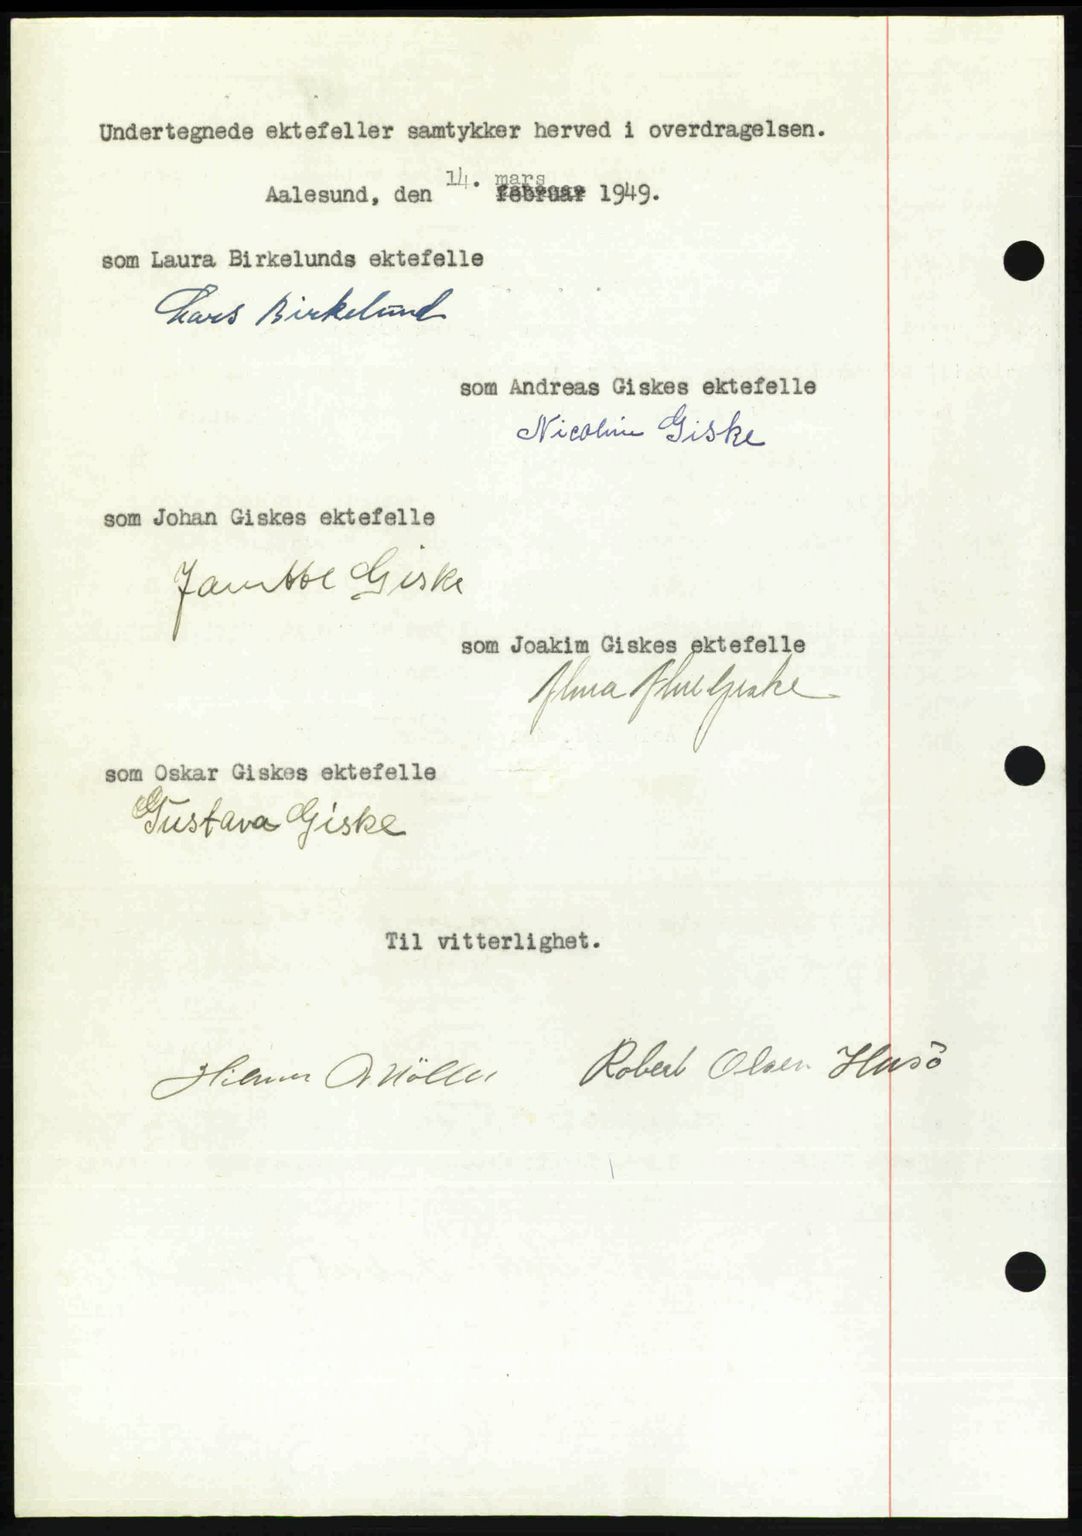 Undertegnede ektefeller samtykker herved i overdragelsen.
Aalesund, den 14. mars februar 1949.
som Laura Birkelunds ektefelle
Lars Birkelund
som Andreas Giskes ektefelle
Nicoline Giske
som Johan Giskes ektefelle
Giske
som Joakim Giskes ektefelle
Alma Giske
som Oskar Giskes ektefelle
Gustava Giske
Til vitterlighet.
Robert Olsen Husö